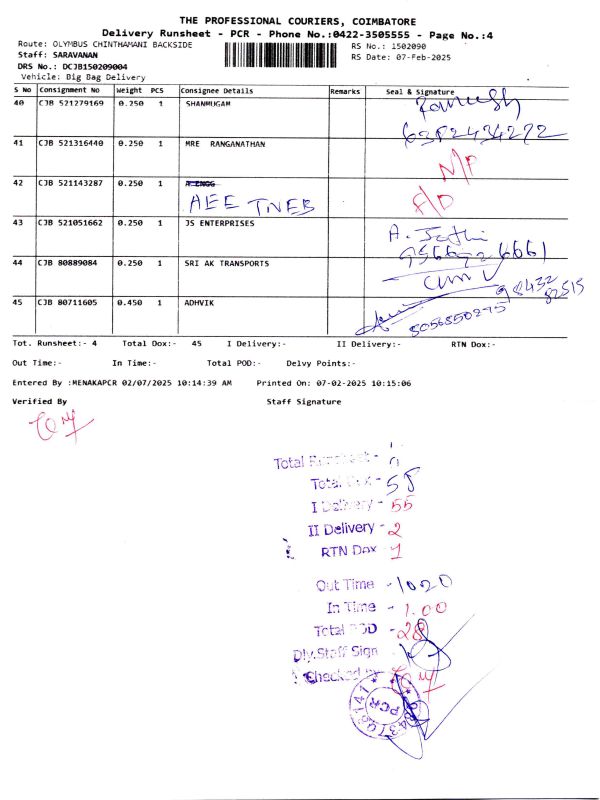 THE PROFESSIONAL COURIERS, COIMBATORE
Delivery Runsheet - PCR - Phone No.:0422-3505555 - Page No.:4
Route: OLYMBUS CHINTHAMANI BACKSIDE RS No.: 1502090
Staff: SARAVANAN RS Date: 07-Feb-2025
DRS No.: DCJB150209004
Vehicle: Big Bag Delivery
S No Consignment No Weight PCS Consignee Details Remarks Seal & Signature
40 CJB 521279169 0.250 1 SHANMUGAM
6382434272
41 CJB 521316440 0.250 1 MRE RANGANATHAN
N/P
42 CJB 521143287 0.250 1 A.ENGG
AEE TNEB F/D
43 CJB 521051662 0.250 1 JS ENTERPRISES
44 CJB 80889084 0.250 1 SRI AK TRANSPORTS
98432
82515
45 CJB 80711605 0.450 1 ADHVIK
8056550275
Tot. Runsheet:- 4 Total Dox:- 45 I Delivery:- II Delivery:- RTN Dox:-
Out Time:- In Time:- Total POD:- Delvy Points:-
Entered By :MENAKAPCR 02/07/2025 10:14:39 AM Printed On: 07-02-2025 10:15:06
Verified By Staff Signature
Total Runsheet -
Total Dox - 58
I Delivery - 55
II Delivery - 2
RTN Dox - 1
Out Time - 1020
In Time - 1.00
Total POD - 28
Dly.Staff Sign
Checked by
PCR